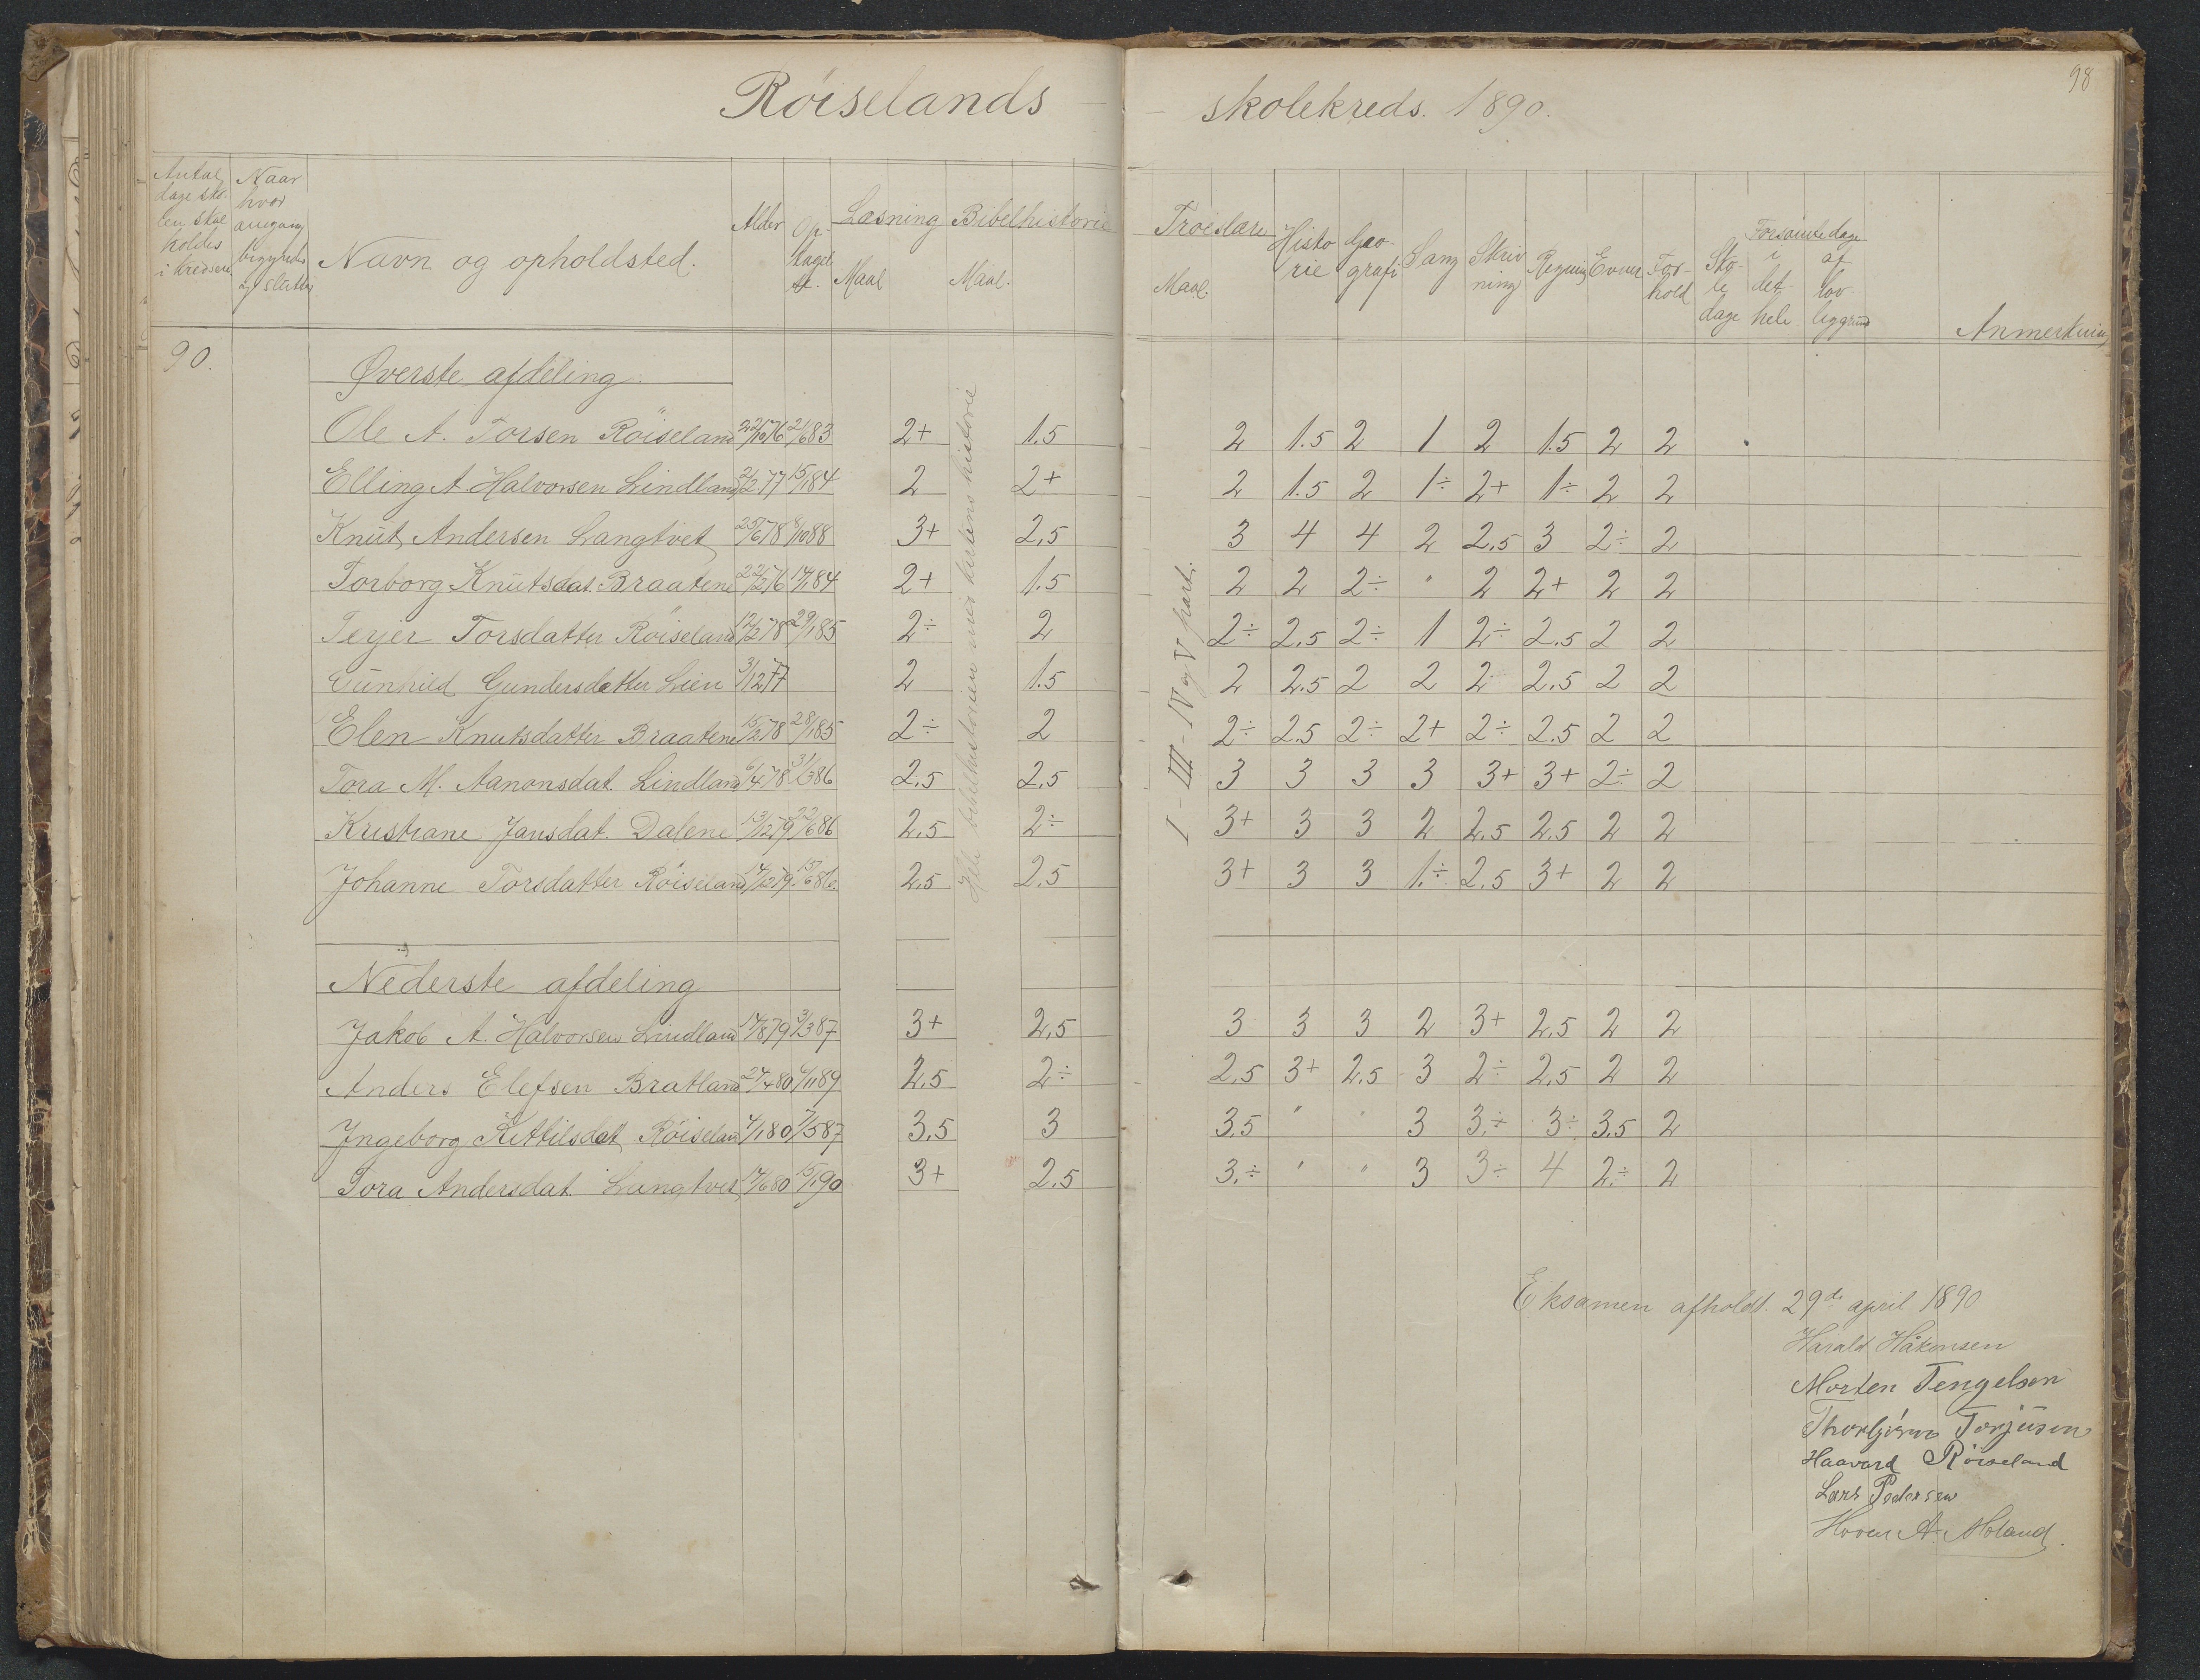 98
Röiselands - - skolekreds. 1890.
Antal dage skolen skal holdes i kredsen
Naar hver omgang begyndes og slutter
Navn og opholdsted.
Alder
Optaget
Læsning Maal
Bibelhistorie Maal.
Troeslære Maal.
Historie
Geografi
Sang
Skrivning
Regning
Evner
Forhold
Skoledage
Forsømte dage
i det hele
af lovlig grund
Anmerkning
90.
Øverste afdeling
Ole A. Torsen Röiseland 22/10 76 2/6 83 2+ 1.5 2 1.5 2 1 2 1.5 2 2
Elling A Halvorsen Lindland 2/2 77 15/1 84 2 2+ 2 1.5 2 1÷ 2+ 1÷ 2 2
Knut Andersen Langtvet 25/6 78 8/10 88 3+ 2,5 3 4 4 2 2,5 3 2÷ 2
Torborg Knutsdat. Braatene 22/2 76 14/1 84 2+ 1.5 2 2 2÷ " 2 2+ 2 2
Terjer Torsdatter Röiseland 12/2 78 29/1 85 2÷ 2 2÷ 2.5 2÷ 1 2÷ 2.5 2 2
Gunhild Gundersdatter Lien 3/12 77 2 1.5 2 2.5 2 2 2 2.5 2 2
Elen Knutsdatter Braatene 15/2 78 28/1 85 2÷ 2 2÷ 2.5 2÷ 2+ 2÷ 2.5 2 2
Tora M. Aanonsdat. Lindland 6/4 78 31/3 86 2.5 2.5 3 3 3 3 3+ 3+ 2÷ 2
Kristiane Jansdat. Dalene 13/12 79 22/6 86 2.5 2÷ 3+ 3 3 2 2.5 2.5 2 2
Johanne Torsdatter Röiseland 14/12 79 15/6 86 2.5 2.5 3+ 3 3 1.÷ 2.5 3+ 2 2
Hele bibelhistorien med kirkens historie
I - III - IV og V part.
Nederste afdeling
Jakob A. Halvorsen Lindland 14/8 79 3/3 87 3+ 2,5 3 3 3 2 3+ 2,5 2 2
Anders Elefsen Bratland 24/4 80 6/11 89 2.5 2÷ 2.5 3+ 2.5 3 2÷ 2,5 2 2
Ingeborg Kittilsdat Röiseland 4/1 80 7/5 87 3.5 3 3.5 " " 3 3.÷ 3÷ 3.5 2
Tora Andersdat. Langtvet 14/6 80 15/1 90 3+ 2.5 3.÷ " " 3 3÷ 4 2.÷ 2
Eksamen afholdt. 29de april 1890
Harald Håkonsen
Morten Tengelsen
Thorbjörn Torjusen
Haavard Röiseland
Lars Pedersen
A. Moland.